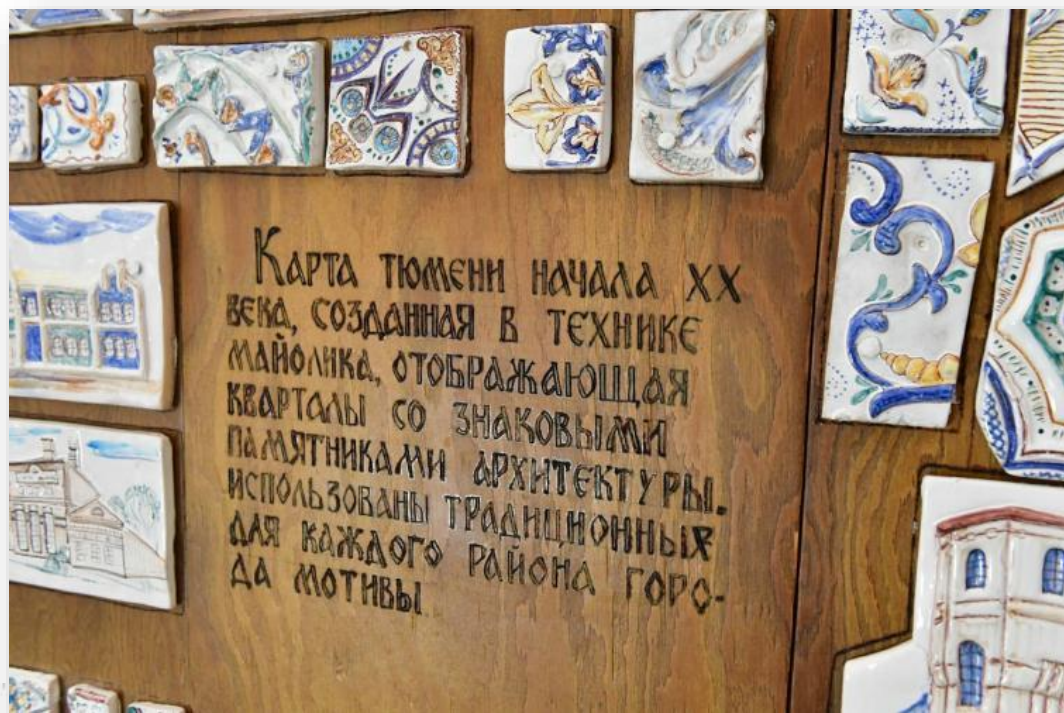 Карта тюмени начала XX
века, созданная в технике
майолика, отображающая
кварталы со знаковыми
памятниками архитектуры.
использованы традиционных
для каждого района горо-
да мотивы